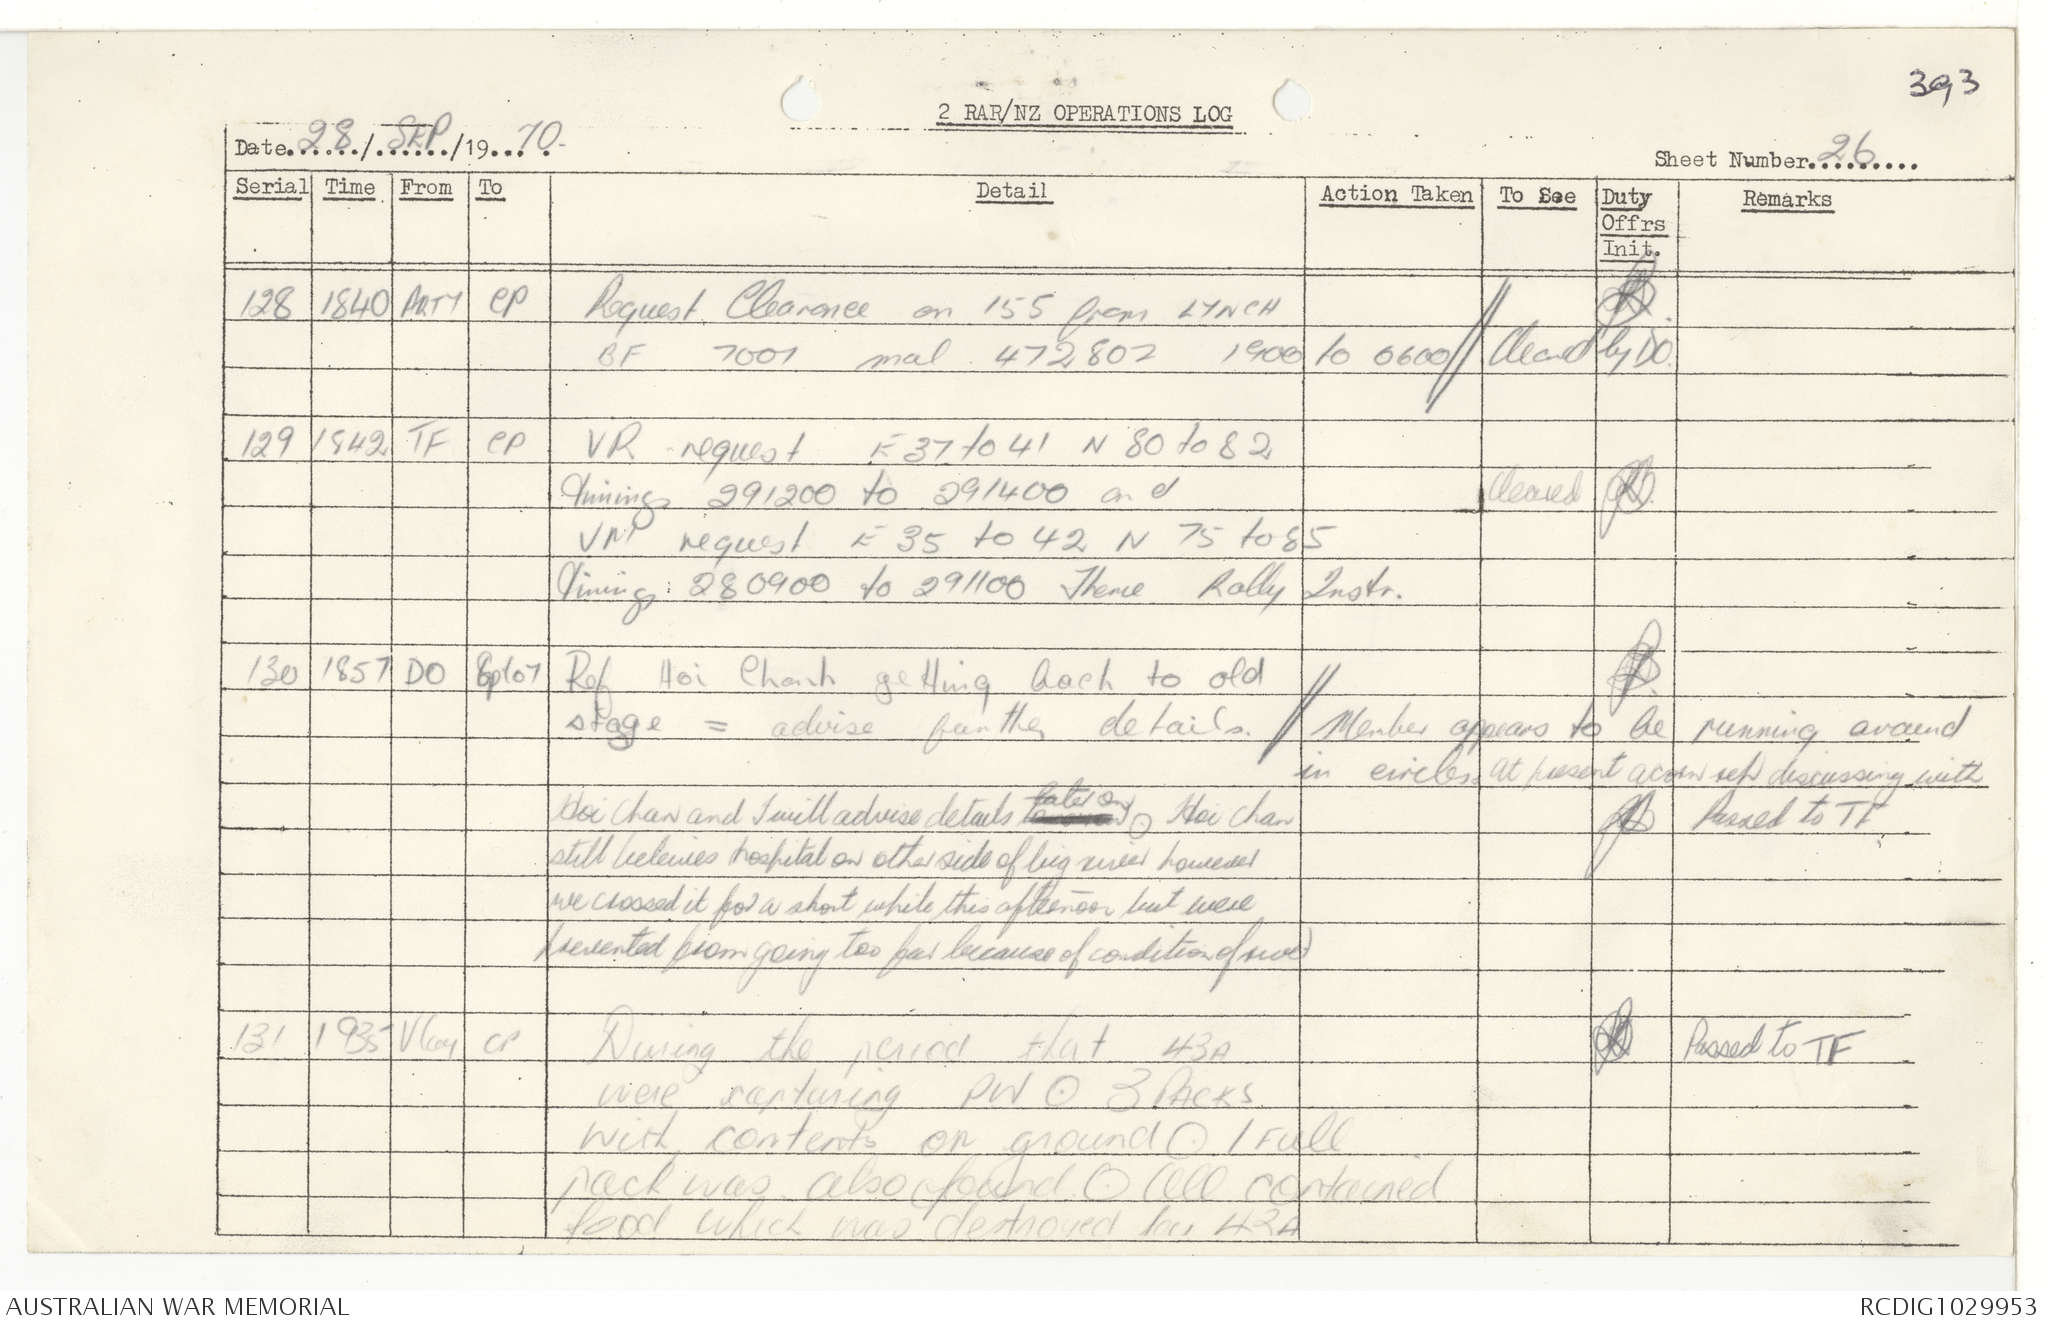 393
2 RAR/NZ OPERATIONS LOG
Date 28/SEP/1970.
Sheet Number 26
Serial Time From To Detail Action Taken To See Duty Offrs Init. Remarks
128 1840 ARTY CP Request Clearance on 155 from LYNCH
BF 7007 mal 472807 1900 to 0600 // Cleared by DO.
129 1842 TF CP VR request E 37 to 41 N 80 to 82
timings 291200 to 291400 and Cleared
request E 35 to 42 N 75 to 85
timing: 280900 to 291100 Theme Rally Instr.
130 1857 DO Ref Hoi Chanh getting back to old
stage = advise further details. // Member appears to be running around
in circles. At present acorn rep discussing with
Hoi Chan and I will advise details later on ⊙ Hoi Chan Passed to TF
still beleives hospital on other side of big river however
we crossed it for a short while this afternoon but were
prevented from going too far because of condition of river
131 1935 CP During the period that 43A Passed to TF
were capturing PW ⊙ 3 PACKS
with contents on ground ⊙ 1 FULL
pack was also found ⊙ All contained
food which was destroyed by 43A
AUSTRALIAN WAR MEMORIAL
RCDIG1029953